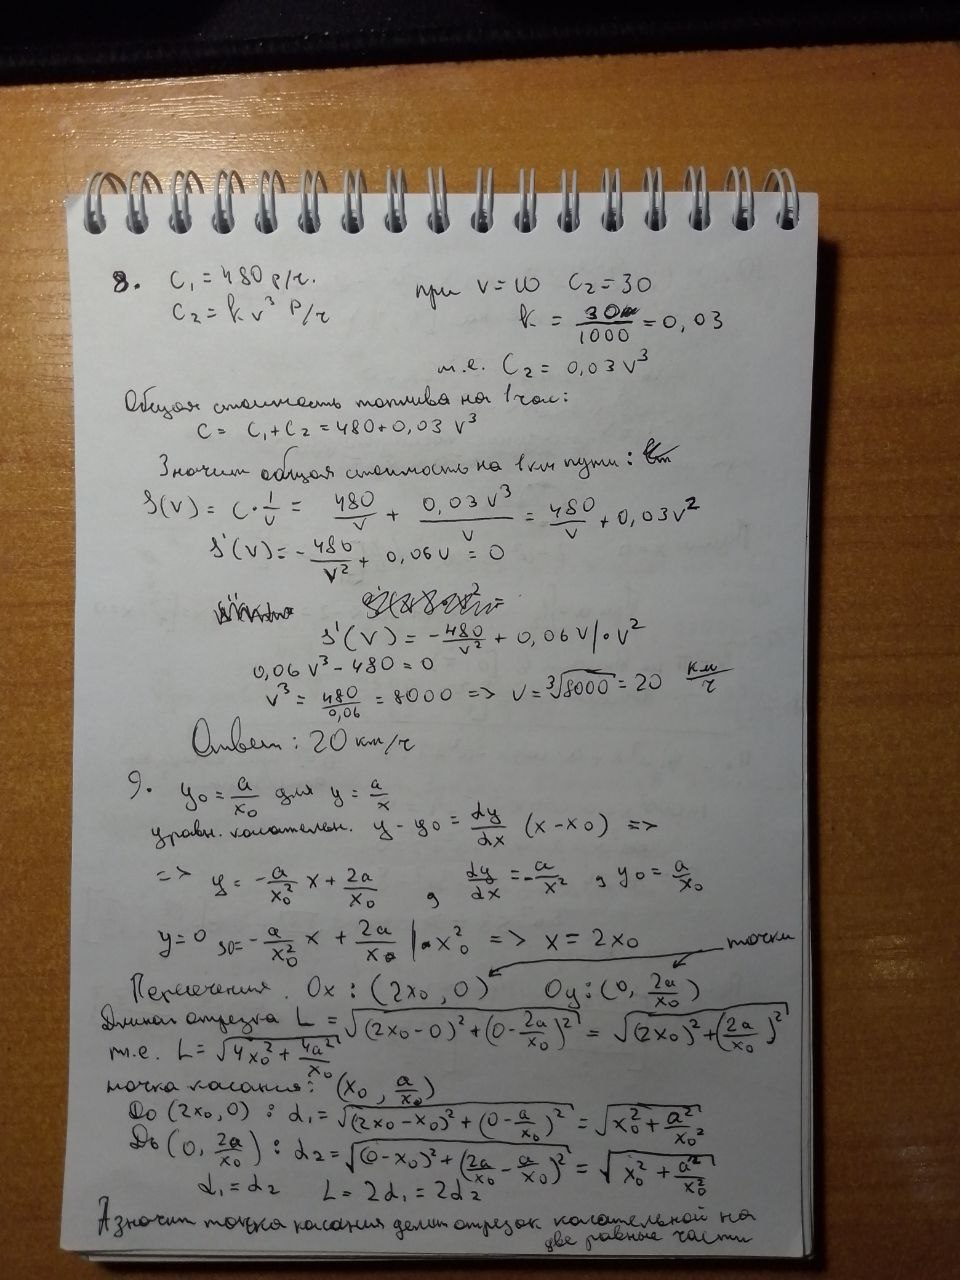 8. C₁ = 480 р/ч. при v = 10 C₂ = 30
C₂ = k v³ р/ч k = 30/1000 = 0,03
т.е. C₂ = 0,03 v³
Общая стоимость топлива на 1 час:
C = C₁ + C₂ = 480 + 0,03 v³
Значит общая стоимость на 1 км пути:
S(v) = C · 1/v = 480/v + 0,03 v³/v = 480/v + 0,03v²
S'(v) = -480/v² + 0,06v = 0
S'(v) = -480/v² + 0,06v | · v²
0,06 v³ - 480 = 0
v³ = 480/0,06 = 8000 => v = ³√8000 = 20 км/ч
Ответ: 20 км/ч
9. y₀ = a/x₀ для y = a/x
уравн. касательн. y - y₀ = dy/dx (x - x₀) =>
=> y = -a/x₀² x + 2a/x₀ , dy/dx = -a/x² , y₀ = a/x₀
y = 0 0 = -a/x₀² x + 2a/x₀ | · x₀² => x = 2x₀ точки
Пересечения. Ox : (2x₀, 0) Oy : (0, 2a/x₀)
Длина отрезка L = √((2x₀ - 0)² + (0 - 2a/x₀)²) = √((2x₀)² + (2a/x₀)²)
т.е. L = √(4x₀² + 4a²/x₀)
точка касания: (x₀, a/x₀)
До (2x₀, 0) : d₁ = √((2x₀ - x₀)² + (0 - a/x₀)²) = √(x₀² + a²/x₀²)
До (0, 2a/x₀) : d₂ = √((0 - x₀)² + (2a/x₀ - a/x₀)²) = √(x₀² + a²/x₀²)
d₁ = d₂ L = 2d₁ = 2d₂
А значит точка касания делит отрезок касательной на
две равные части